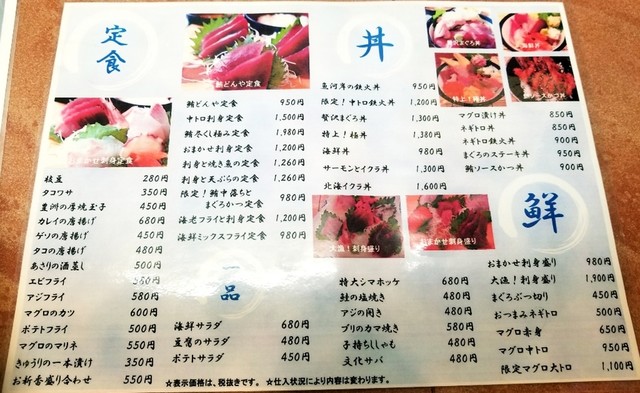 定食
鮪どんや定食
鮪どんや定食 950円
中トロ刺身定食 1,500円
鮪尽くし極み定食 1,980円
おまかせ刺身定食 1,200円
刺身と焼き魚の定食 1,260円
刺身と天ぷらの定食 1,260円
限定！鮪中落ちと
まぐろかつ定食 980円
海老フライと刺身定食 1,200円
海鮮ミックスフライ定食 980円
おまかせ刺身定食
枝豆 280円
タコワサ 350円
豊洲の厚焼玉子 450円
カレイの唐揚げ 680円
ゲソの唐揚げ 450円
タコの唐揚げ 480円
あさりの酒蒸し 500円
エビフライ 580円
アジフライ 580円
マグロのカツ 600円
ポテトフライ 500円
マグロのマリネ 550円
きゅうりの一本漬け 350円
お新香盛り合わせ 550円
一品
海鮮サラダ 680円
豆腐のサラダ 480円
ポテサラダ 450円
丼
魚河岸の鉄火丼 950円
限定！中トロ鉄火丼 1,200円
贅沢まぐろ丼 1,300円
特上！極丼 1,380円
海鮮丼 980円
サーモンとイクラ丼 1,300円
北海イクラ丼 1,600円
贅沢まぐろ丼
海鮮丼
特上！極丼
鮪ソースかつ丼
マグロ漬け丼 850円
ネギトロ丼 850円
ネギトロ鉄火丼 900円
まぐろのステーキ丼 950円
鮪ソースかつ丼 900円
鮮
大漁！刺身盛り
おまかせ刺身盛り
特大シマホッケ 680円
鮭の塩焼き 480円
アジの開き 580円
ブリのカマ焼き 580円
子持ちししゃも 480円
文化サバ 480円
おまかせ刺身盛り 980円
大漁！刺身盛り 1,900円
まぐろぶつ切り 450円
おつまみネギトロ 500円
マグロ赤身 650円
マグロ中トロ 950円
限定マグロ大トロ 1,100円
☆表示価格は、税抜きです。 ☆仕入状況により内容は変わります。